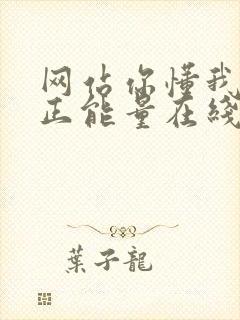 网站你懂我
正能量在线
葉子龍